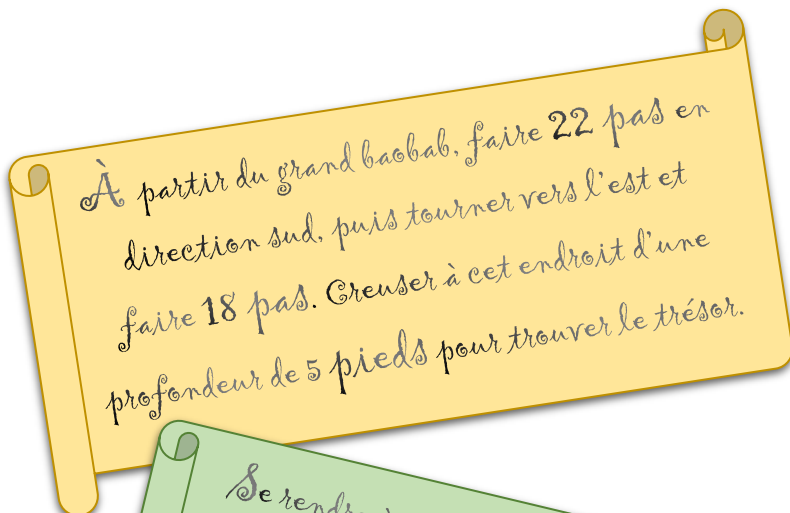 À partir du grand baobab, faire 22 pas en
direction sud, puis tourner vers l'est et
faire 18 pas. Creuser à cet endroit d'une
profondeur de 5 pieds pour trouver le trésor.
Se rendre à